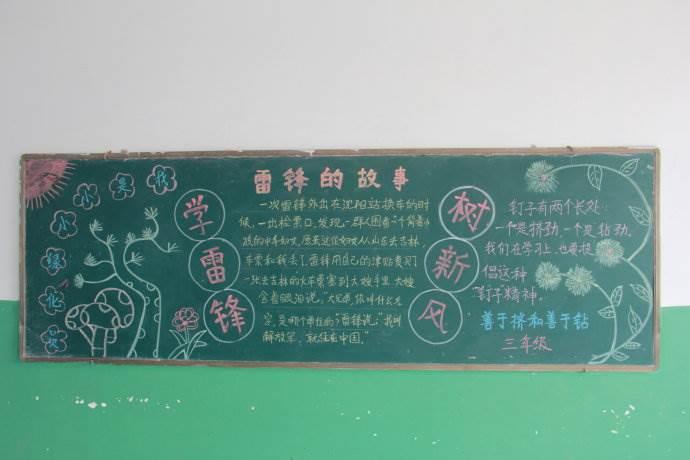 我是小小绿化员
雷锋的故事
学雷锋
一次雷锋外出在沈阳站换车的时
候,一出检票口,发现一群人围着一个背着小
孩的中年妇女,原来这位妇女从山东去吉林,
车票和钱丢了。雷锋用自己的津贴费买了
一张去吉林的火车票塞到大嫂手里,大嫂
含着眼泪说:“大兄弟,你叫什么名
字,是哪个单位的?”雷锋说:“我叫
解放军,就住在中国。”
树新风
钉子有两个长处:
一个是挤劲,一个是钻劲,
我们在学习上,也要提
倡这种
“钉子”精神,
善于挤和善于钻
三年级